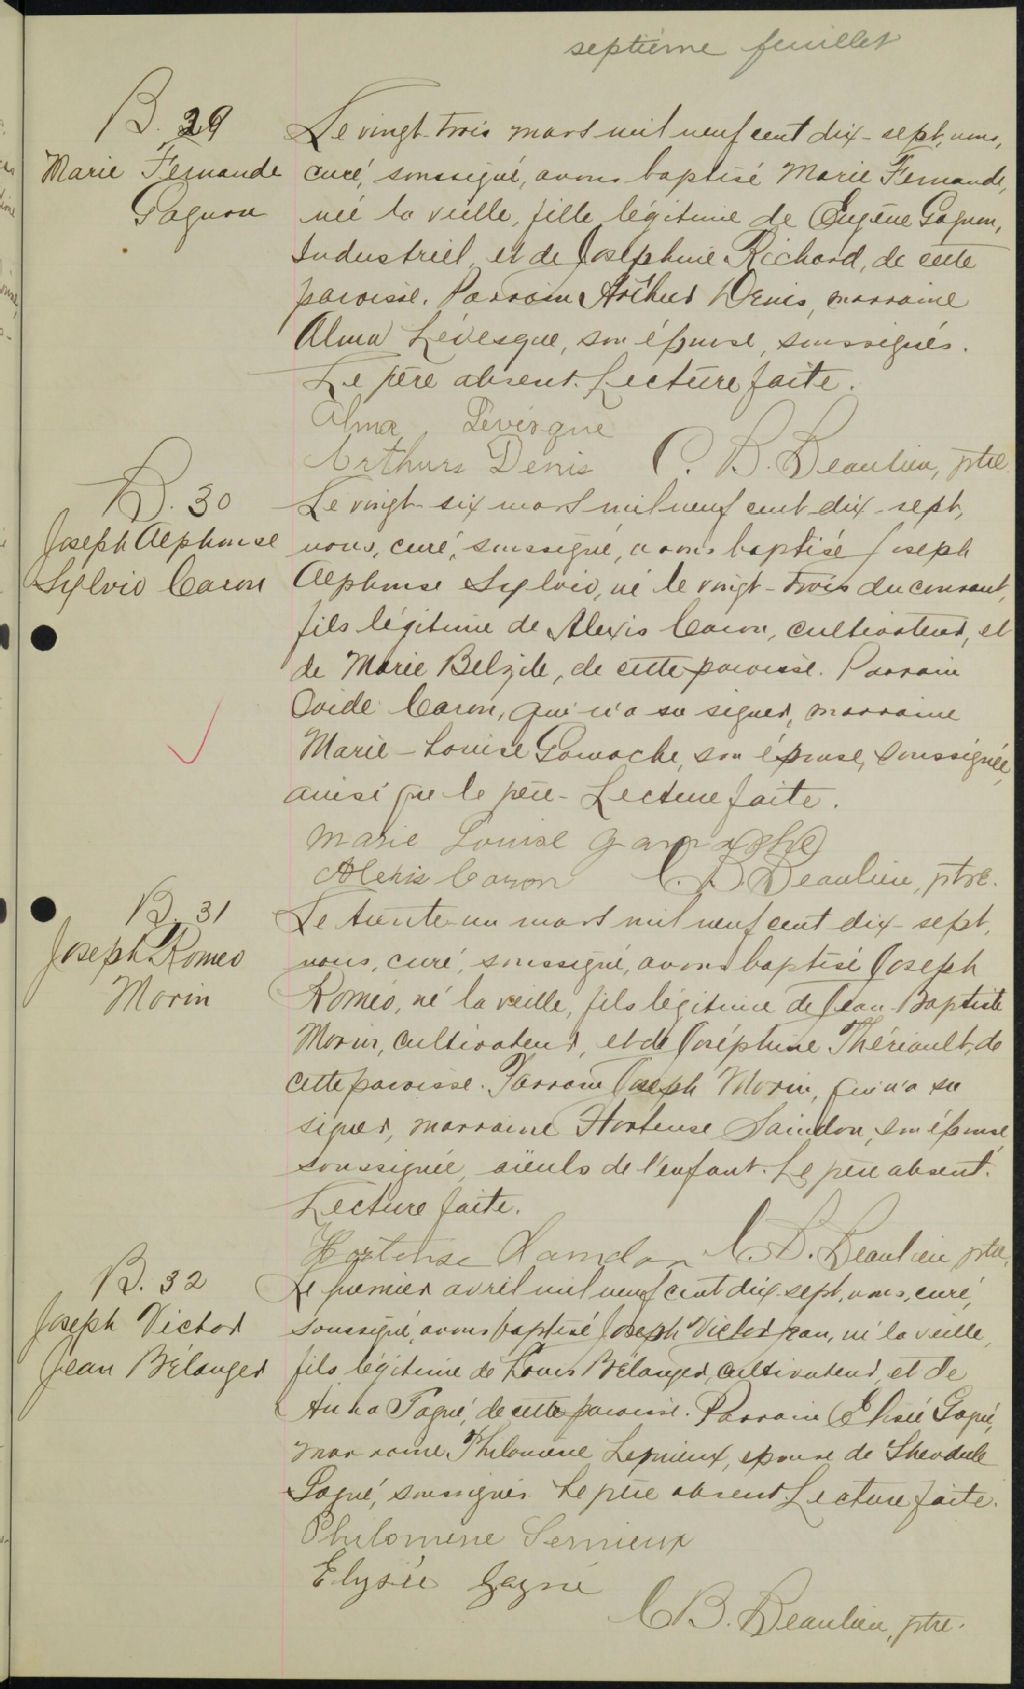 septième feuillet
B. 29
Marie Fernande
Gagnon
Le vingt-trois mars mil neuf cent dix-sept, nous,
curé, soussigné, avons baptisé Marie Fernande,
née la veille, fille légitime de Eugène Gagnon,
Industriel, et de Joséphine Richard, de cette
paroisse. Parrain Arthur Denis, marraine
Alma Lévesque, son épouse, soussignés.
Le père absent. Lecture faite.
Alma Lévesque
Arthurs Denis C. B. Beaulieu, ptre
B. 30
Joseph Alphonse
Sylvio Caron
Le vingt-six mars mil neuf cent dix-sept,
nous, curé, soussigné, avons baptisé Joseph
Alphonse Sylvio, né le vingt-trois du courant,
fils légitime de Alexis Caron, cultivateur, et
de Marie Belzile, de cette paroisse. Parrain
Ovide Caron, qui n'a su signer, marraine
Marie-Louise Gamache, son épouse, soussignée,
ainsi que le père. Lecture faite.
Marie Louise Gamache
Alexis Caron C. B Beaulieu, ptre.
B. 31
Joseph Romeo
Morin
Le trente-un mars mil neuf cent dix-sept,
nous, curé, soussigné, avons baptisé Joseph
Roméo, né la veille, fils légitime de Jean-Baptiste
Morin, cultivateur, et de Joséphine Thériault, de
cette paroisse. Parrain Joseph Morin, qui n'a su
signer, marraine Hortense Saindon, son épouse,
soussignée, aïeuls de l'enfant. Le père absent.
Lecture faite.
Hortense Saindon C. B. Beaulieu ptre,
B. 32
Joseph Victor
Jean Bélanger
Le premier avril mil neuf cent dix-sept, nous, curé,
soussigné, avons baptisé Joseph Victor Jean, né la veille,
fils légitime de Louis Bélanger, cultivateur, et de
Anna Gagné, de cette paroisse. Parrain Elisée Gagné,
marraine Philomène Lemieux, épouse de Theodule
Gagné, soussignés. Le père absent. Lecture faite.
Philomene Lemieux
Elysée Gagné
C B. Beaulieu, ptre.